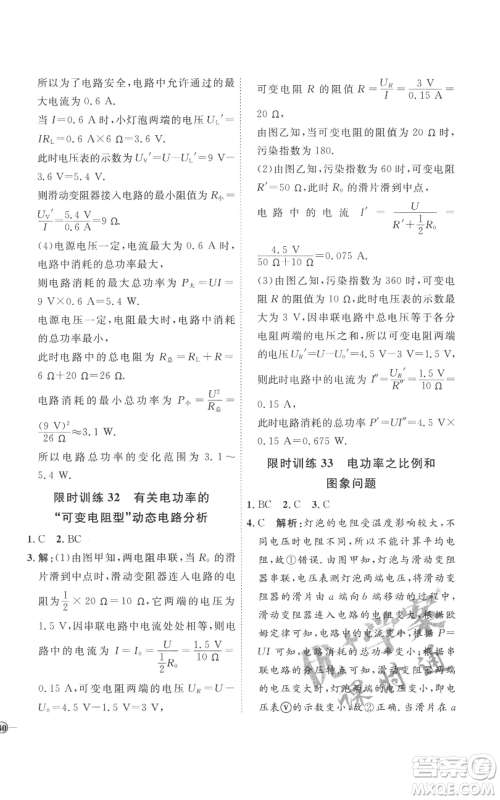 所以为了电路安全,电路中允许通过的最
大电流为 0.6 A。
当 I=0.6 A 时,小灯泡两端的电压 U_L′=
IR_L=0.6 A×6 Ω=3.6 V。
此时电压表的示数为 U_V′=U-U_L′=9 V-
3.6 V=5.4 V。
则滑动变阻器接入电路的最小阻值 R_小=
U_V′/I=5.4 V/0.6 A=9 Ω。
(4)电源电压一定,当电路中电流最大时,
电路消耗的总功率最大,
则电路消耗的最大总功率为 P_大=UI=
9 V×0.6 A=5.4 W。
当滑动变阻器接入电路的电阻最大时,
电路消耗的总功率最小,
此时电路的总电阻 R_总=R_L+R=
6 Ω+20 Ω=26 Ω。
电路消耗的最小总功率为 P_小=U²/R_总=
(9 V)²/26 Ω≈3.1 W。
所以电路的总功率的变化范围为 3.1 W~
5.4 W。
限时训练 32 有关电功率的
“可变电阻型”动态电路分析
1. C 2. BC
3. 解:(1)由图甲知,两电阻串联,当 R₀ 的滑
片在中点时,滑动变阻器连入电路的电阻
为 1/2×20 Ω=10 Ω,它两端的电压为
1.5 V,因串联电路中电流处处相等,故电
路中的电流为 I=I₀=U/(1/2 R₀)=1.5 V/10 Ω=
0.15 A,可变电阻两端的电压 U_R=3 V,
可变电阻 R 的阻值 R=U_R/I=3 V/0.15 A=
20 Ω,
由图乙知,当可变电阻的阻值为 20 Ω 时,
污染指数为 180。
(2)由图乙知,污染指数为 60 时,可变电阻
R′=50 Ω,此时 R₀ 的滑片滑片在中点,
电路中的电流 I′=U/(R′+1/2 R₀)=
4.5 V/(50 Ω+10 Ω)=0.075 A。
(3)由图乙知,当污染指数为 360 时,可变
电阻 R″=10 Ω,此时电压表的示数最大为
3 V,因串联电路两端的电压等于各部分
电压之和,故此时可变电阻两端的电压
U_R′=U-U₀′=4.5 V-3 V=1.5 V。
此时电路中的电流为 I″=U_R′/R″=1.5 V/10 Ω=
0.15 A,
此时电路消耗的总功率 P=UI″=4.5 V×
0.15 A=0.675 W。
限时训练 33 电功率之比例和
图象问题
1. BC 2. C 3. C
4. C 解析:灯泡的电阻受温度影响较大,不
同电压下,电阻不同,所以不能计算平均电
阻,故①错误。由电路图可知,滑动变阻
器与灯泡串联,电压表测灯泡两端的电压,
在滑动变阻器滑片由 a 向 b 移动的过程
中,滑动变阻器接入电路的阻值变小,电路
的总电阻变小,电源电压不变,根据欧姆
定律可知电路中的电流变大。根据 P=
UI 可知,电路消耗的总功率变大;根据串
联电路的分压特点可知,滑动变阻器两端
的电压变小,灯泡两端的电压变大,即电压
表Ⓥ的示数变大,故②正确。当滑片在 a
优+学案
课时通